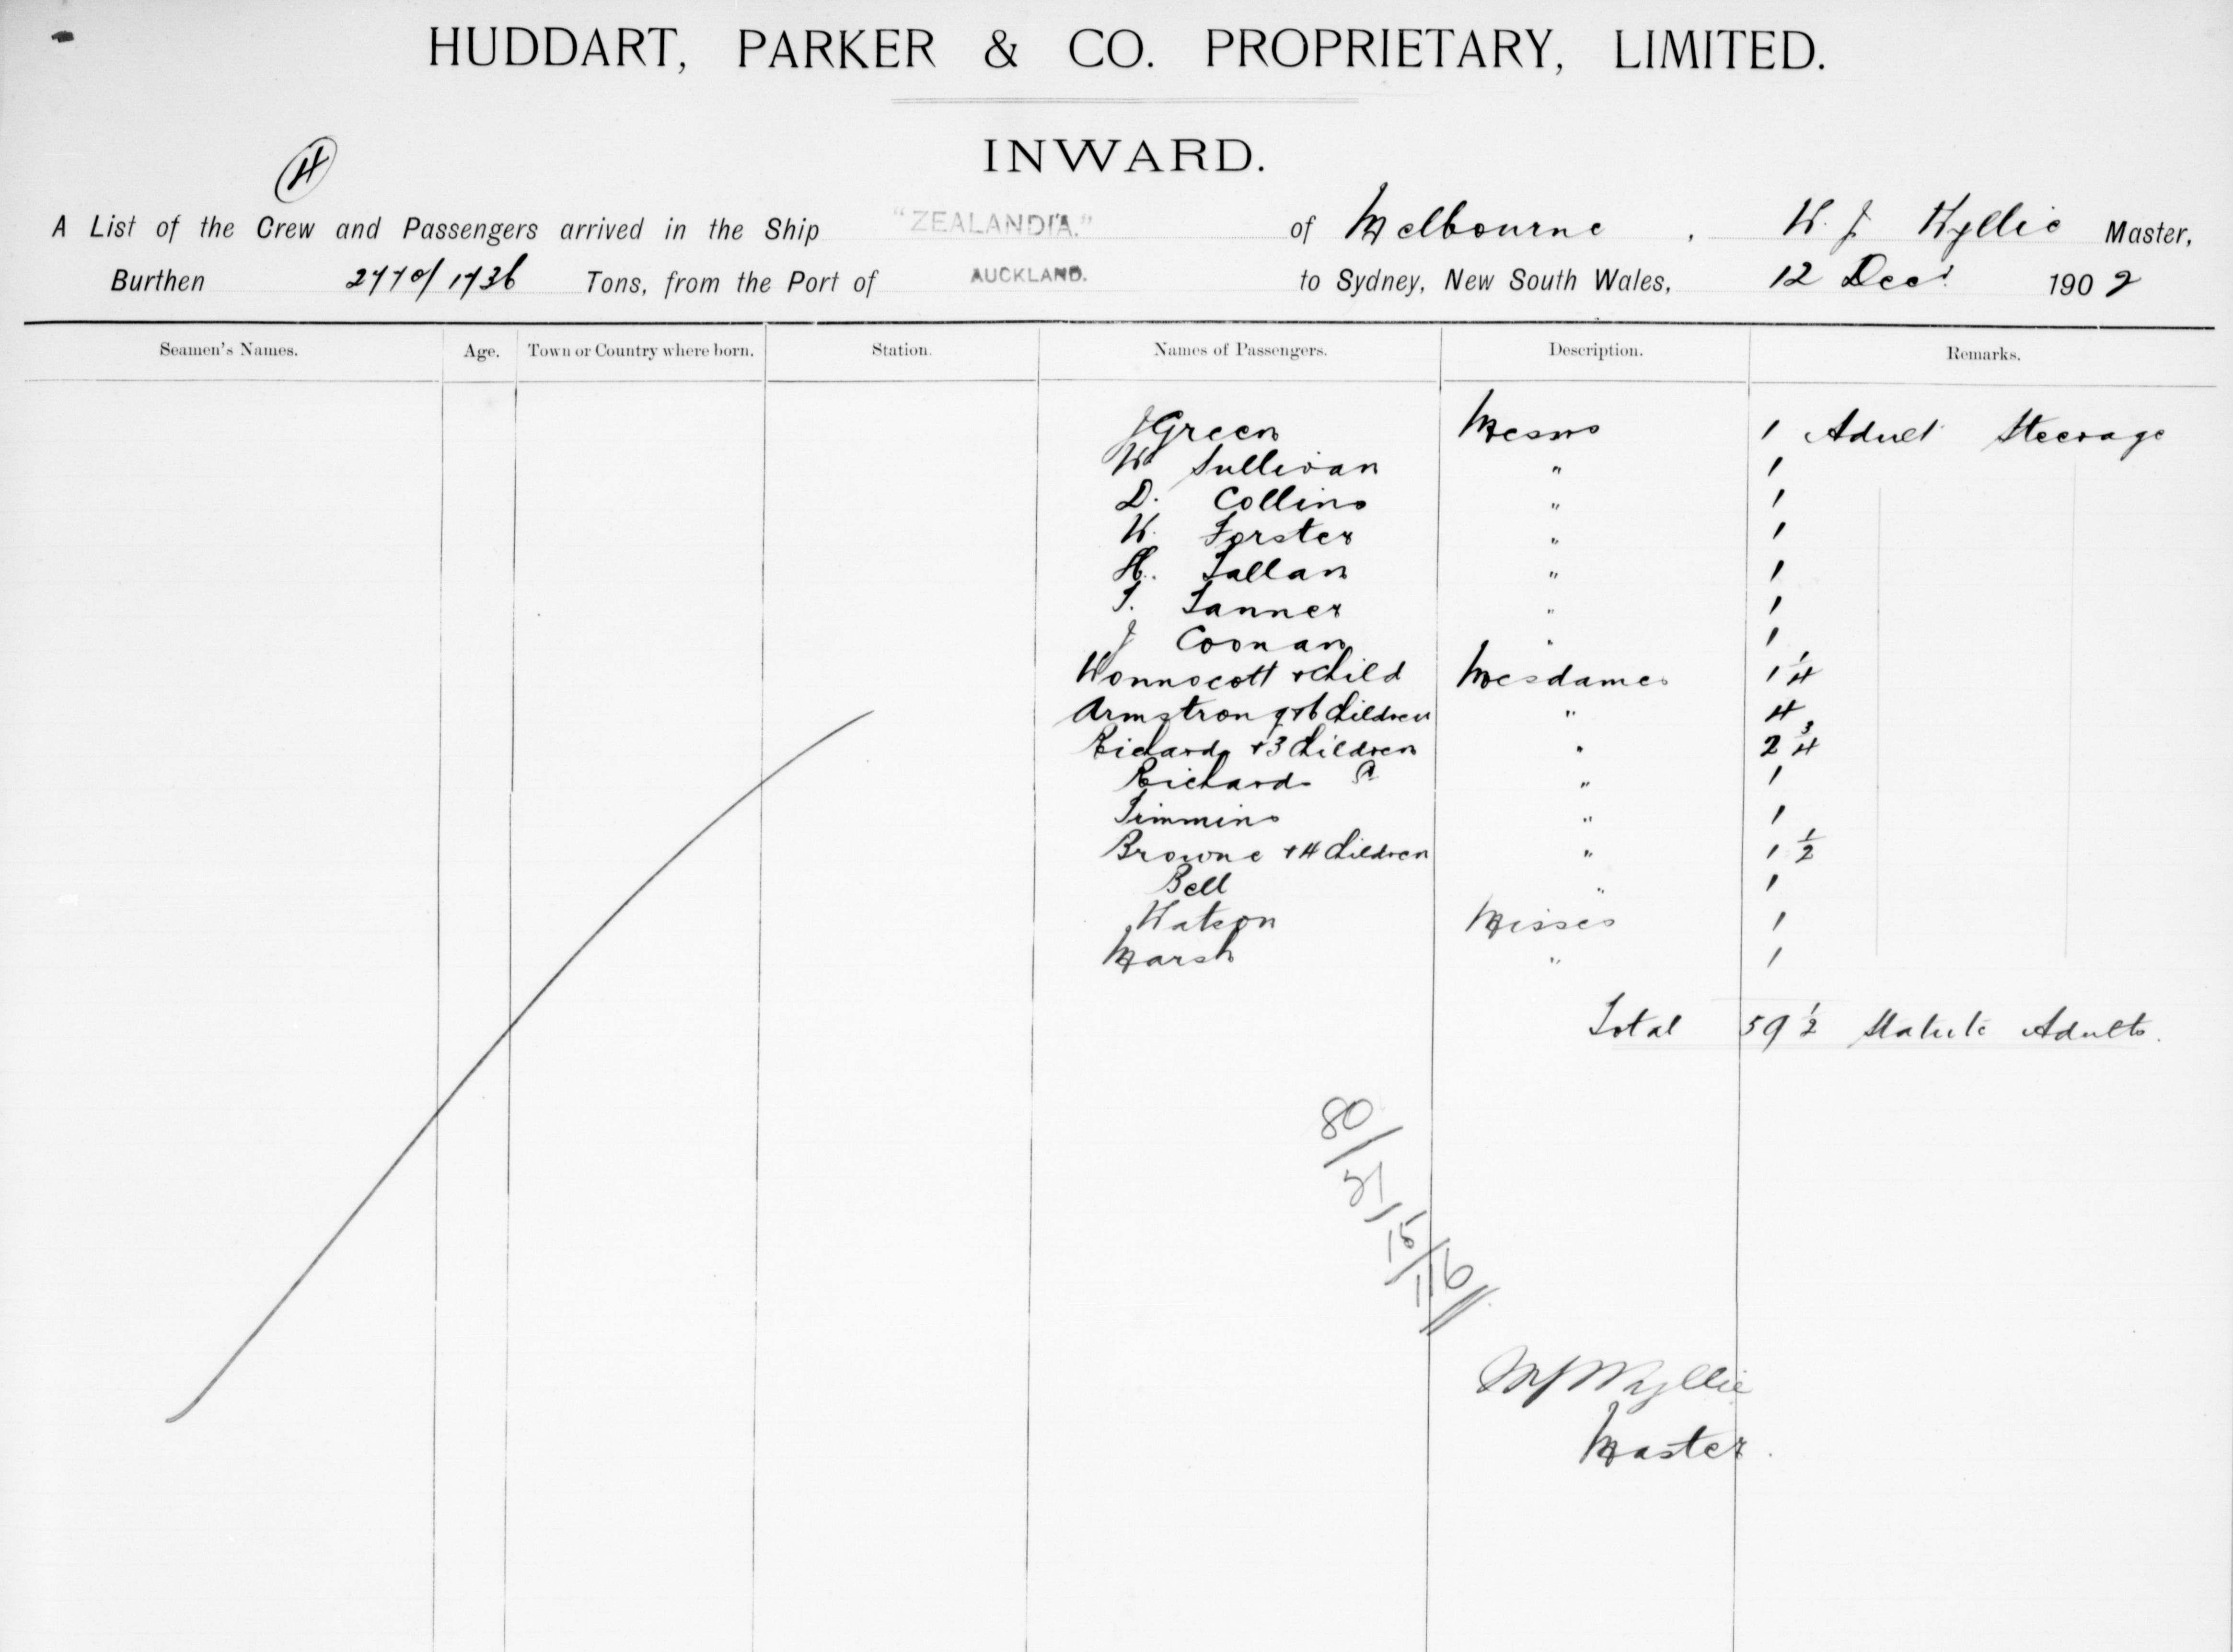 HUDDART, PARKER & CO. PROPRIETARY, LIMITED.
INWARD.
4
A List of the Crew and Passengers arrived in the Ship "ZEALANDIA." of Melbourne, W. J. Wyllie Master,
Burthen 2770/1736 Tons, from the Port of AUCKLAND. to Sydney, New South Wales, 12 Decr 1902
Seamen's Names. Age. Town or Country where born. Station. Names of Passengers. Description. Remarks.
J Green Messrs 1 Adult Steerage
W Sullivan " 1
D. Collins " 1
W. Forster " 1
H. Tallan " 1
T. Tanner " 1
J Coonan " 1
Wonnocott + child Mesdames 1 1/4
Armstrong + 6 children " 4
Richards + 3 children " 2 3/4
Richards " 1
Timmins " 1
Browne + 4 children " 1 1/2
Bell " 1
Watson Misses 1
Marsh " 1
Total 59 1/2 Statute Adults.
80/
21/
15/
116//
W J Wyllie
Master.